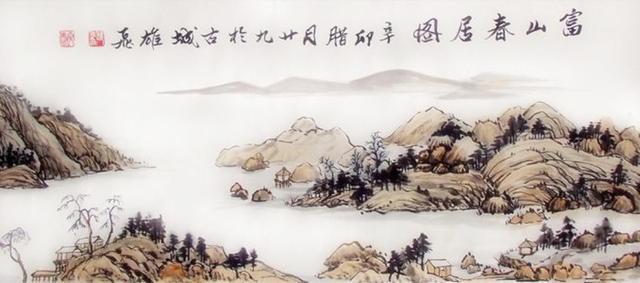 富山春居圖 辛卯腊月廿九於古城雄